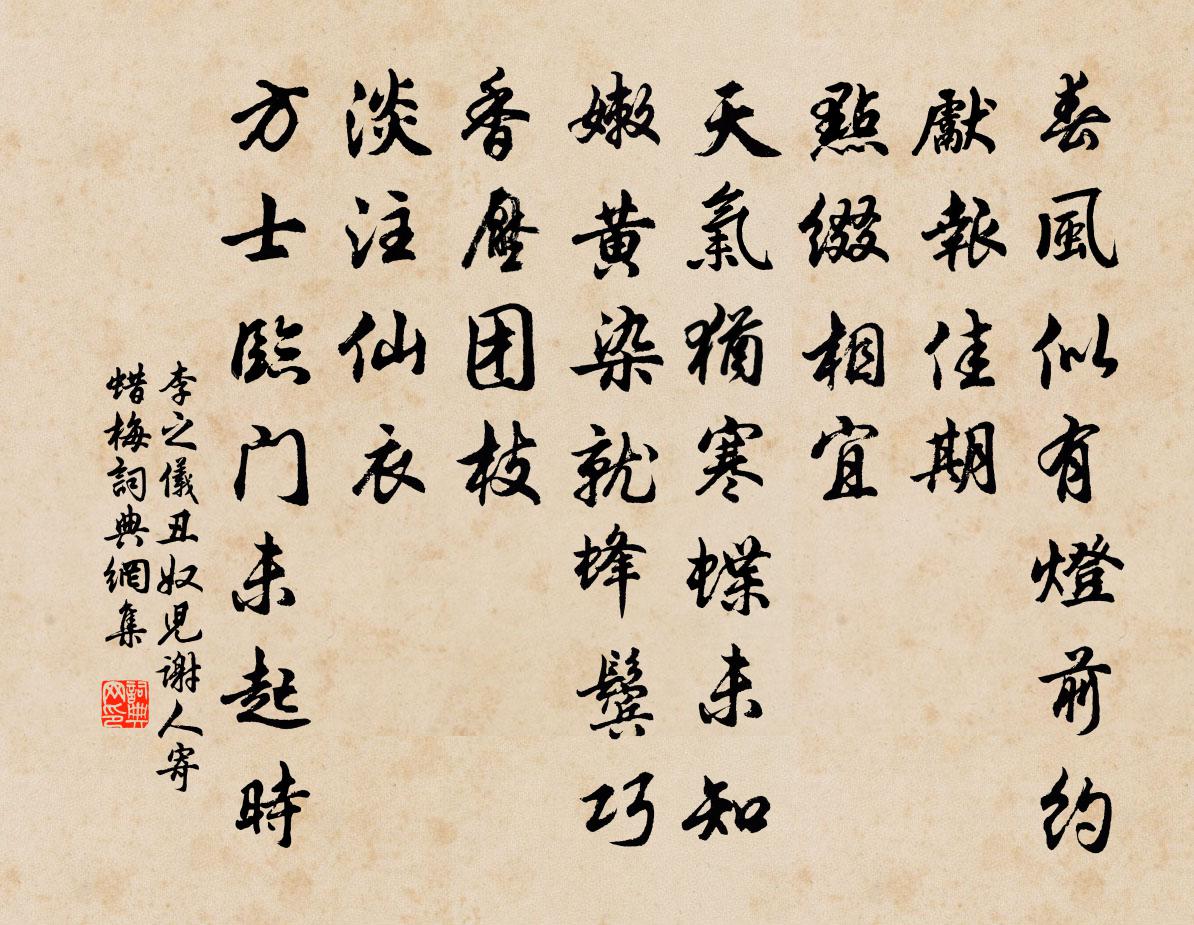 春風似有燈前約
獻報佳期
點綴相宜
天氣猶寒蝶未知
嫩黃染就蜂鬓巧
香壓团枝
淡注仙衣
方士臨门未起時
李之儀丑奴児谢人寄
蜡梅詞典網集
詞典
网印